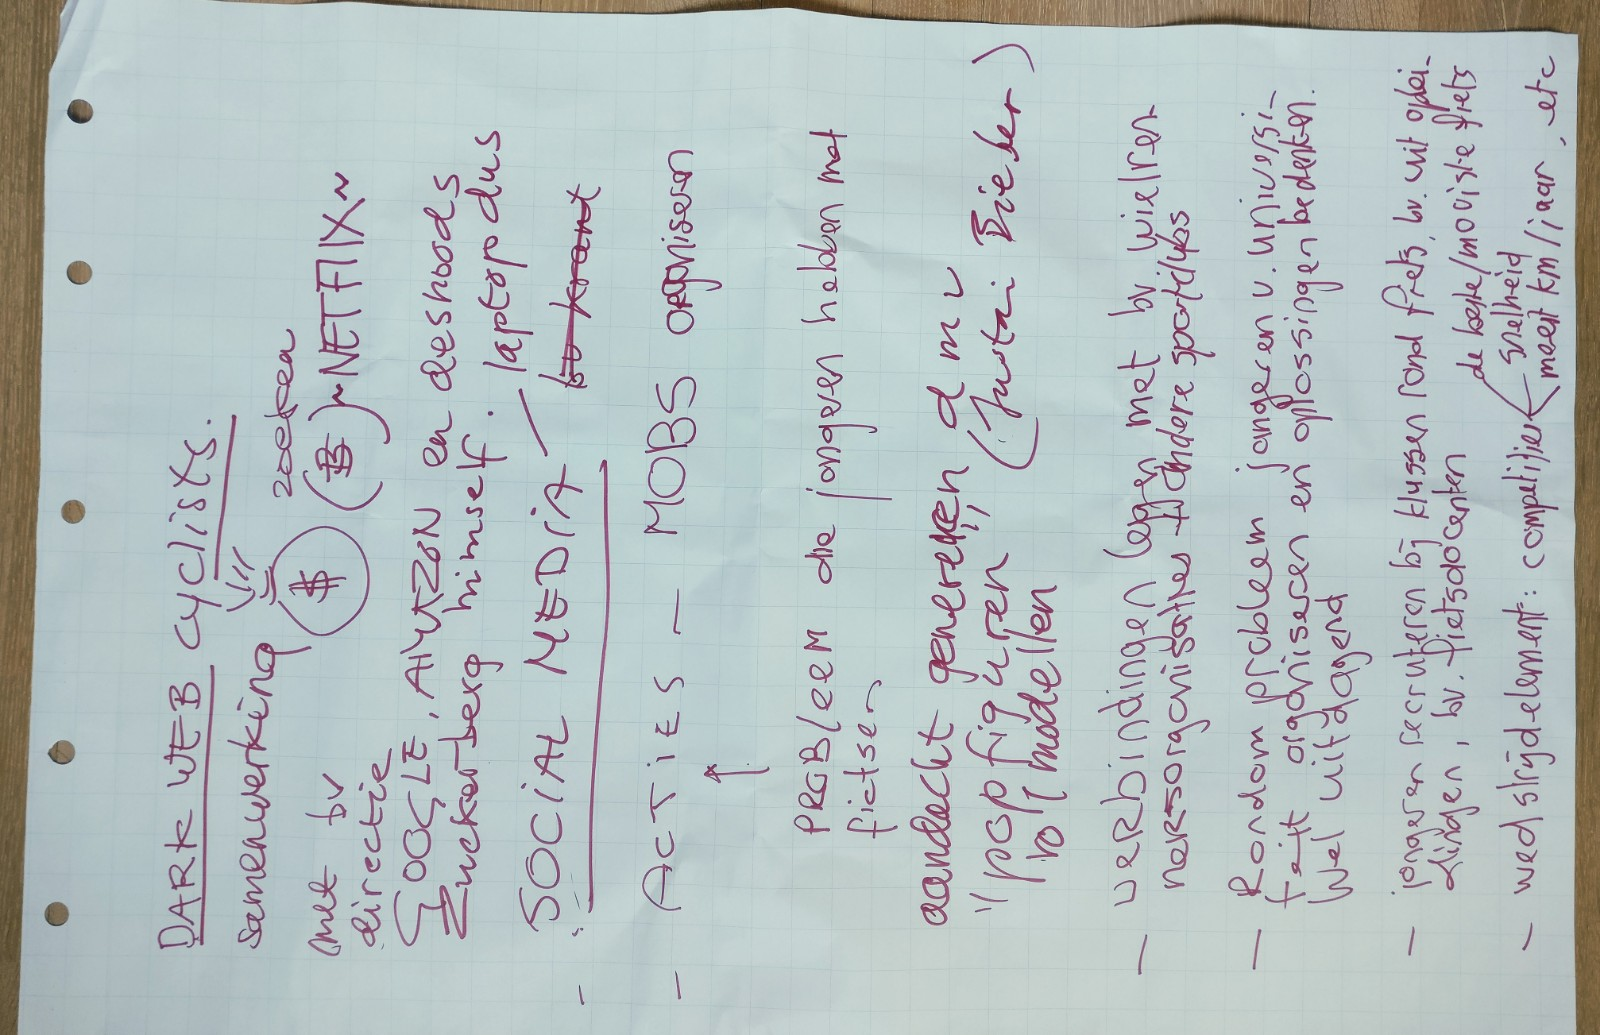 DARK WEB cyclists.
samenwerking $ zoeken
met bv ($) ~ NETFLIX ~
directie
GOOGLE, AMAZON en deshoods
Zuckerberg himself. laptop dus
- SOCIAL MEDIA — bv krant
- ACTIES — MOBS organiseren
PROBleem die jongeren hebben met
fietsen
aandacht genereren d m v
"popfiguren" (Justin Bieber)
rolmodellen
- verbindingen leggen met bv wielren-
nersorganisaties & andere sportclubs
- Rondom probleem jongeren v. universi-
teit organiseren en oplossingen bedenken.
Wel uitdagend
- jongeren recruteren bij klussen rond fiets, bv. uit oplei-
dingen, bv. fietsdocenten
- wedstrijdelement: competitie
de beste/mooiste fiets
snelheid
meest km/jaar, etc